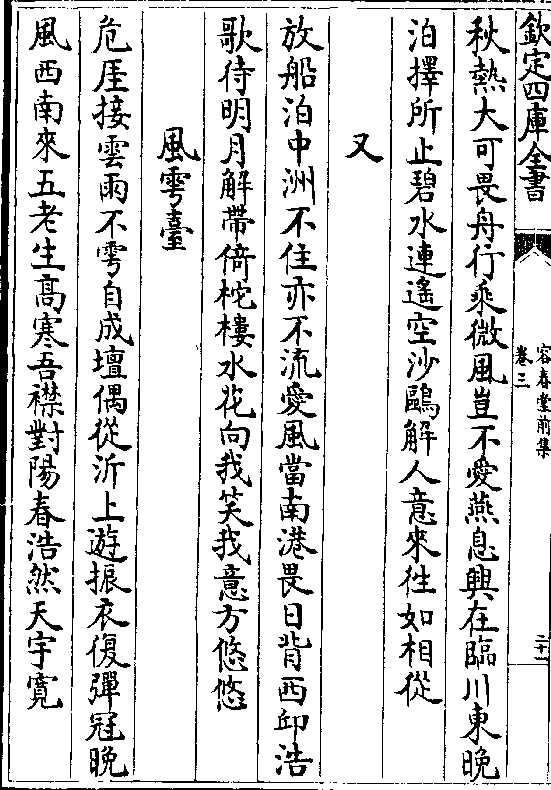 欽定四庫全書
容春堂前集
卷三
二十一
秋熱大可畏舟行乘微風豈不愛燕息興在臨川東晚
泊擇所止碧水連遙空沙鷗解人意來往如相從
又
放船泊中洲不住亦不流愛風當南港畏日背西邱浩
歌待明月解帶倚柁樓水花向我笑我意方悠悠
風雩臺
危厓接雲雨不雩自成壇偶從沂上遊振衣復彈冠晚
風西南來五老生高寒吾襟對陽春浩然天宇寬